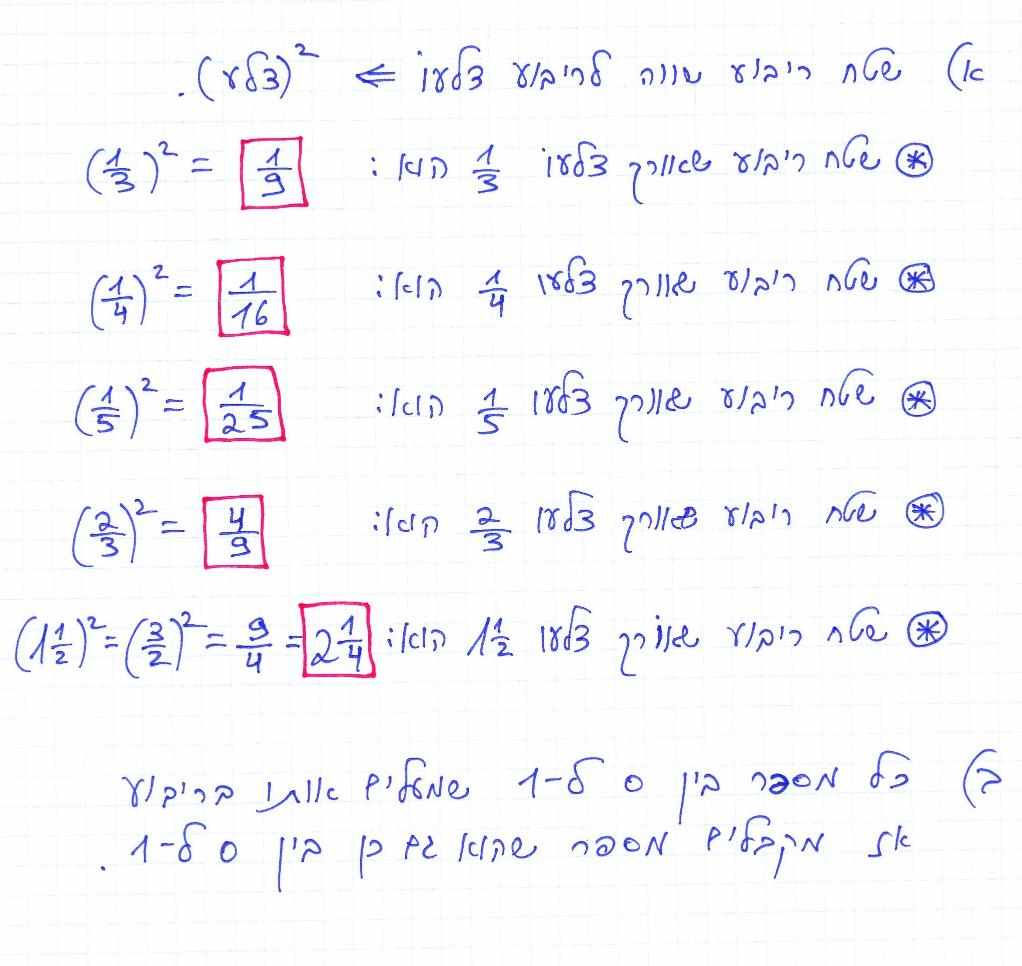 א) שטח ריבוע שווה לריבוע צלעו ⇐ (צלע)².
⊛ שטח ריבוע שאורך צלעו 1/3 הוא: (1/3)² = 1/9
⊛ שטח ריבוע שאורך צלעו 1/4 הוא: (1/4)² = 1/16
⊛ שטח ריבוע שאורך צלעו 1/5 הוא: (1/5)² = 1/25
⊛ שטח ריבוע שאורך צלעו 2/3 הוא: (2/3)² = 4/9
⊛ שטח ריבוע שאורך צלעו 1 1/2 הוא: (1 1/2)² = (3/2)² = 9/4 = 2 1/4
ב) כל מספר בין 0 ל-1 שמעלים אותו בריבוע
אז מקבלים מספר שהוא גם כן בין 0 ל-1.